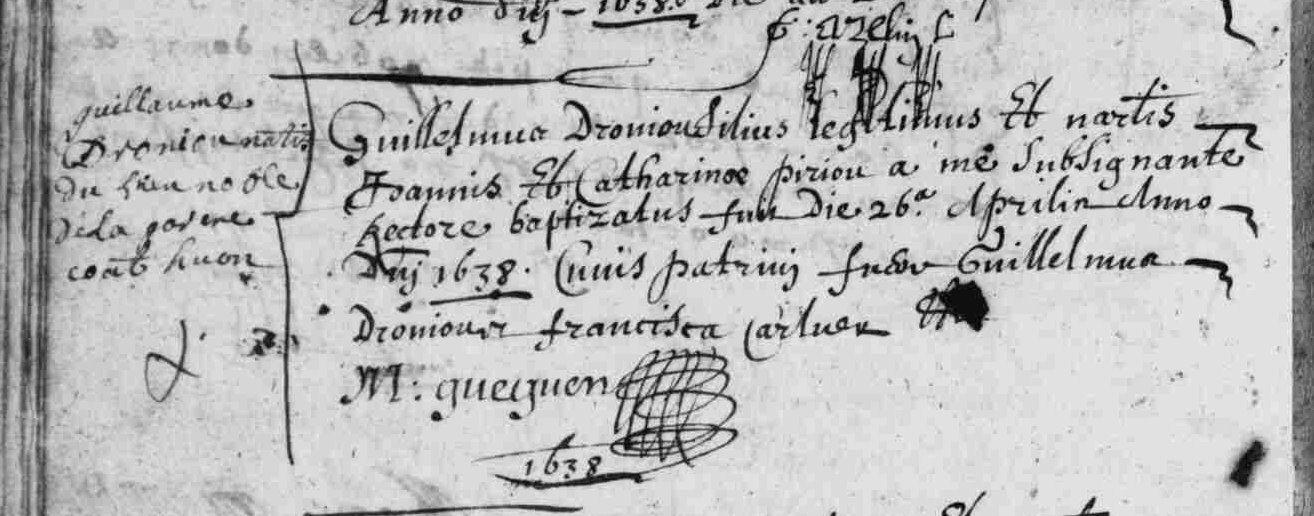 Anno Dnj 1638. Die
guillaume
Droniou natif
du lieu noble
de la
coat huon
Guillelmus Droniou filius legitimus Et
Joannis Et Catharinae piriou a me Subsignante
Rectore baptizatus fuit Die 26.a Aprilis Anno
Dnj 1638. Cuius patrinj fuere Guillelmus
Droniou et francisca
M: gueguen
1638